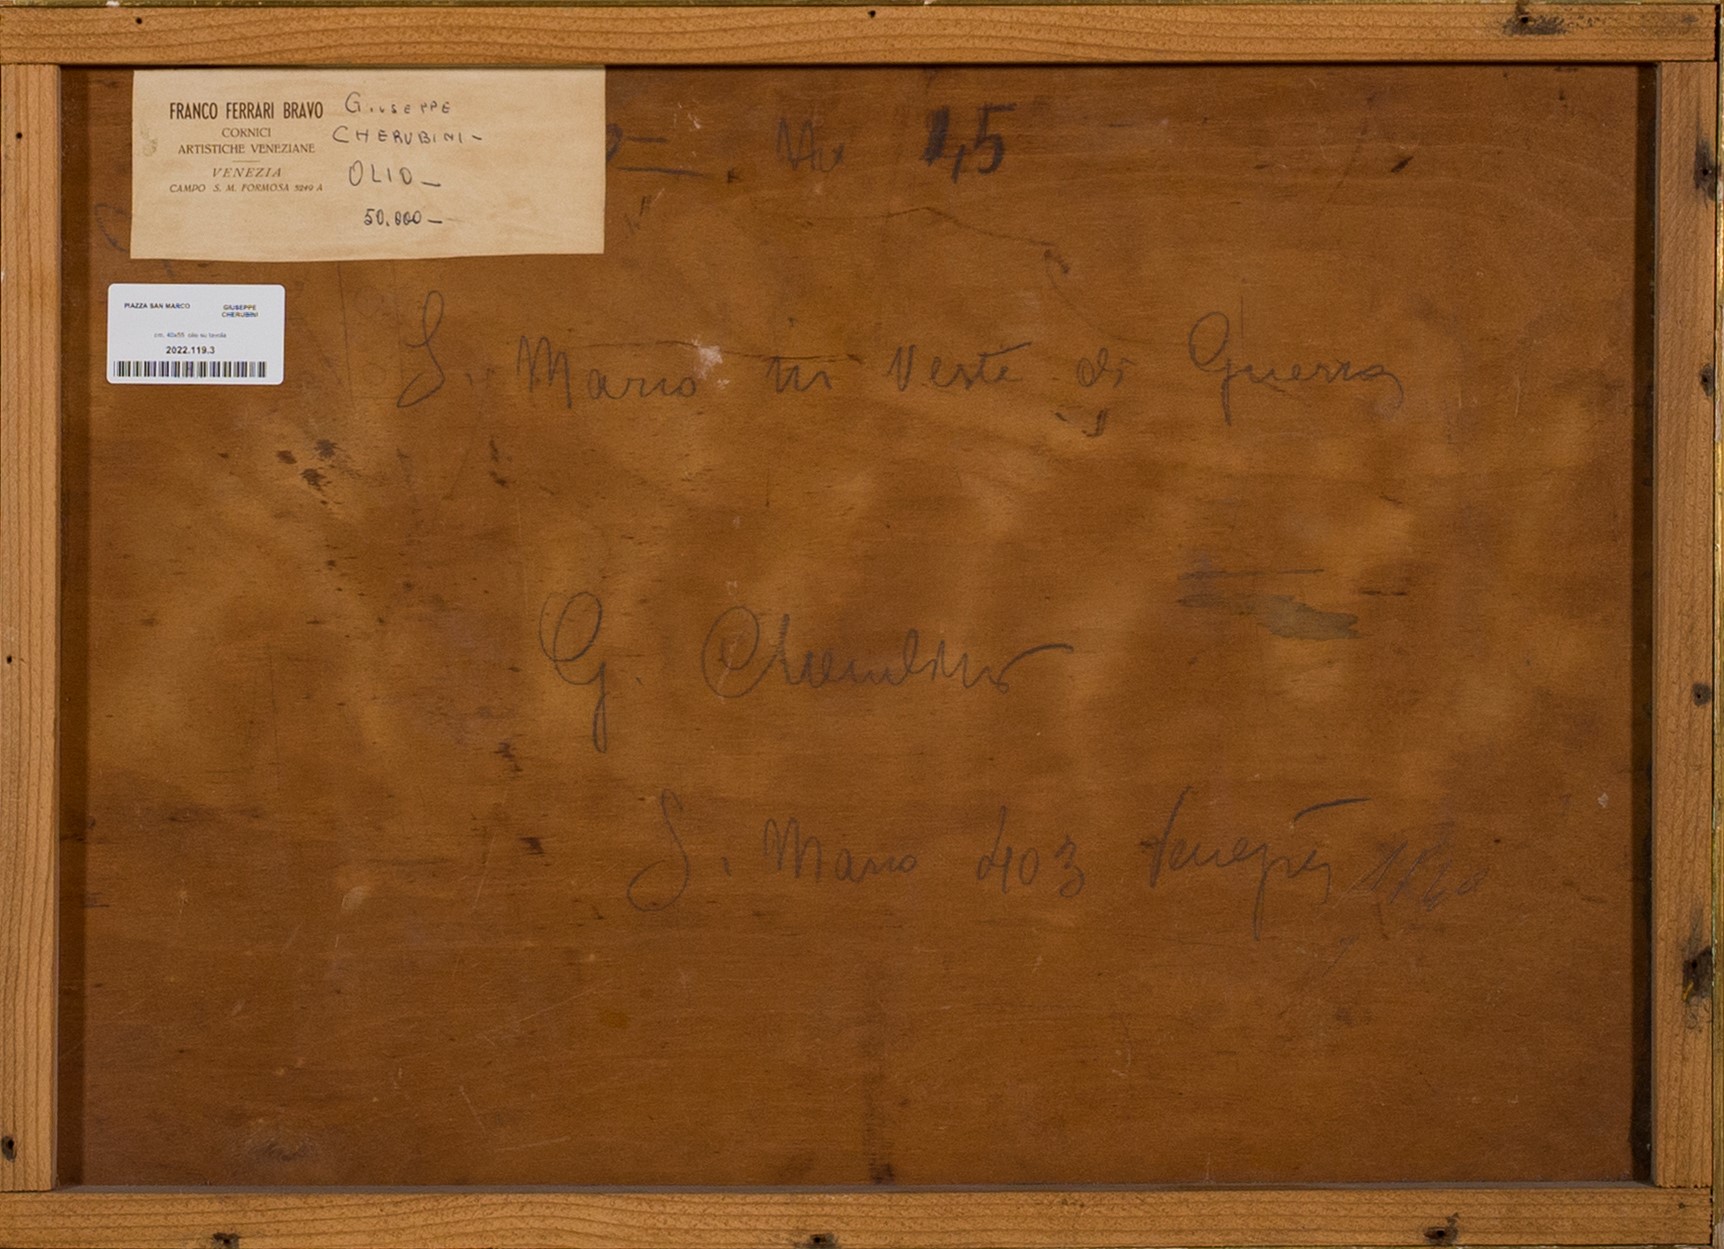 FRANCO FERRARI BRAVO
CORNICI
ARTISTICHE VENEZIANE
VENEZIA
CAMPO S. M. FORMOSA 5249 A
GIUSEPPE
CHERUBINI-
OLIO-
50.000-
45
PIAZZA SAN MARCO GIUSEPPE CHERUBINI
cm. 40x55 olio su tavola
2022.119.3
S. Marco in veste di Guerra
G. Cherubini
S. Marco 403 Venezia